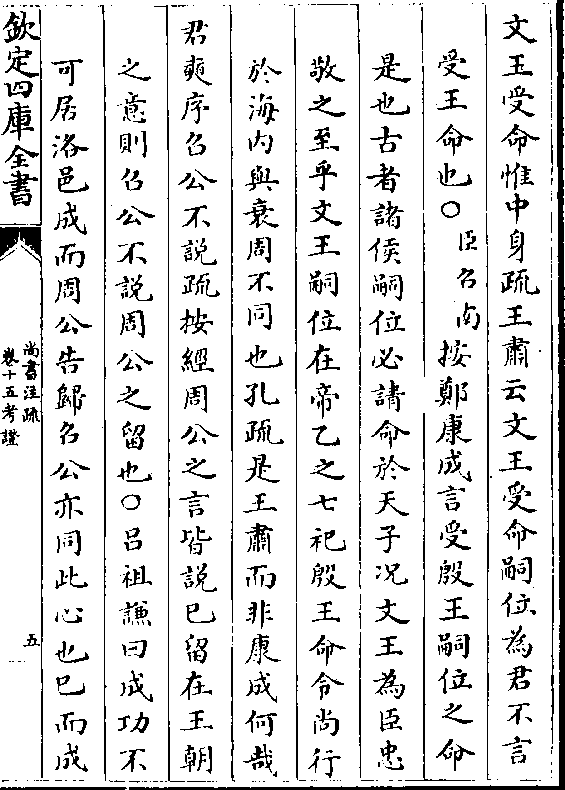 文王受命惟中身疏王肅云文王受命嗣位為君不言
受王命也○臣召南按鄭康成言受殷王嗣位之命
是也古者諸侯嗣位必請命於天子况文王為臣忠
敬之至乎文王嗣位在帝乙之七祀殷王命令尚行
於海内與衰周不同也孔疏是王肅而非康成何哉
君奭序召公不說疏按經周公之言皆說已留在王朝
之意則召公不說周公之留也○呂祖謙曰成功不
可居洛邑成而周公告歸召公亦同此心也已而成
欽定四庫全書
尚書注疏
卷十五考證
五